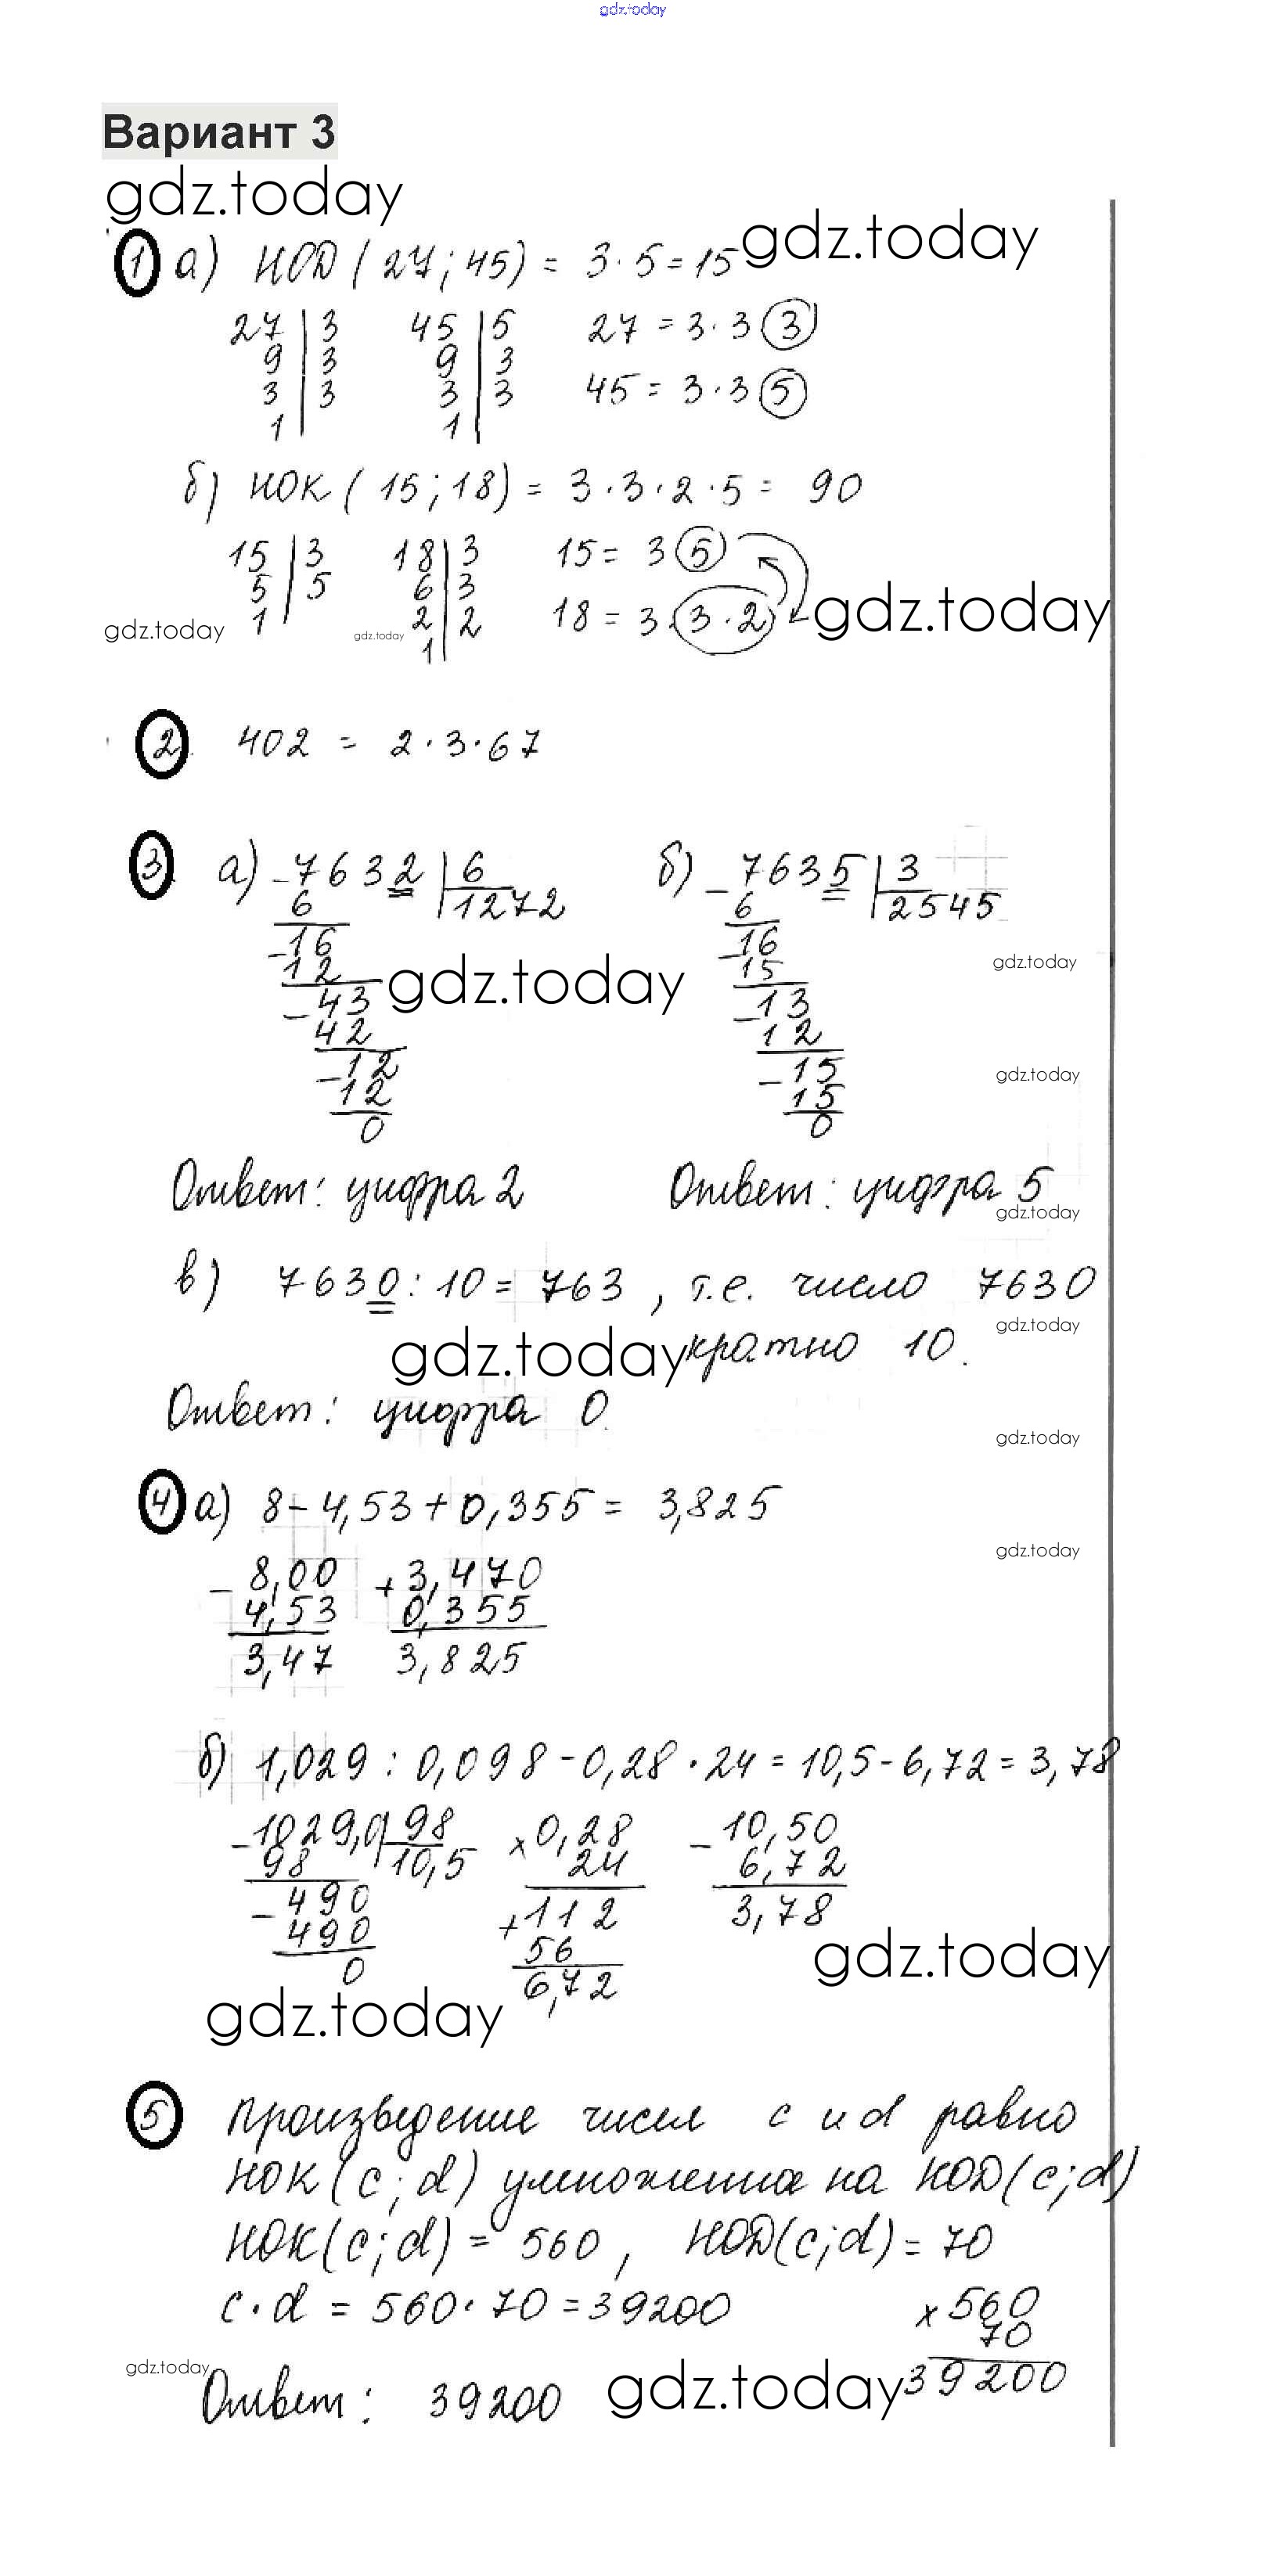 gdz.today
Вариант 3
gdz.today
gdz.today
1 а) НОД (27; 45) = 3·5=15
27 | 3 45 | 5 27 = 3·3 3
9 | 3 9 | 3
3 | 3 3 | 3 45 = 3·3 5
1 1
б) НОК (15; 18) = 3·3·2·5 = 90
15 | 3 18 | 3 15 = 3 5
5 | 5 6 | 3
1 2 | 2 18 = 3·3·2
1
gdz.today gdz.today gdz.today
2 402 = 2·3·67
3 а) -7632 | 6 б) -7635 | 3
6 1272 6 2545
-16 -16
12 15
-43 -13
42 12
-12 -15
12 15
0 0
gdz.today
gdz.today
gdz.today
Ответ: цифра 2 Ответ: цифра 5
gdz.today
в) 7630 : 10 = 763, т.е. число 7630
gdz.today
gdz.today кратно 10.
Ответ: цифра 0.
gdz.today
4 а) 8-4,53+0,355 = 3,825
gdz.today
- 8,00 + 3,470
4,53 0,355
3,47 3,825
б) 1,029 : 0,098 - 0,28 · 24 = 10,5 - 6,72 = 3,78
-1029,0 | 98 × 0,28 - 10,50
98 10,5 24 6,72
-490 +112 3,78
490 56
0 6,72
gdz.today
gdz.today
5 Произведение чисел c и d равно
НОК (c; d) умноженная на НОД (c; d)
НОК (c; d) = 560, НОД (c; d) = 70
c·d = 560·70 = 39200 × 560
70
39200
gdz.today
Ответ: 39200
gdz.today